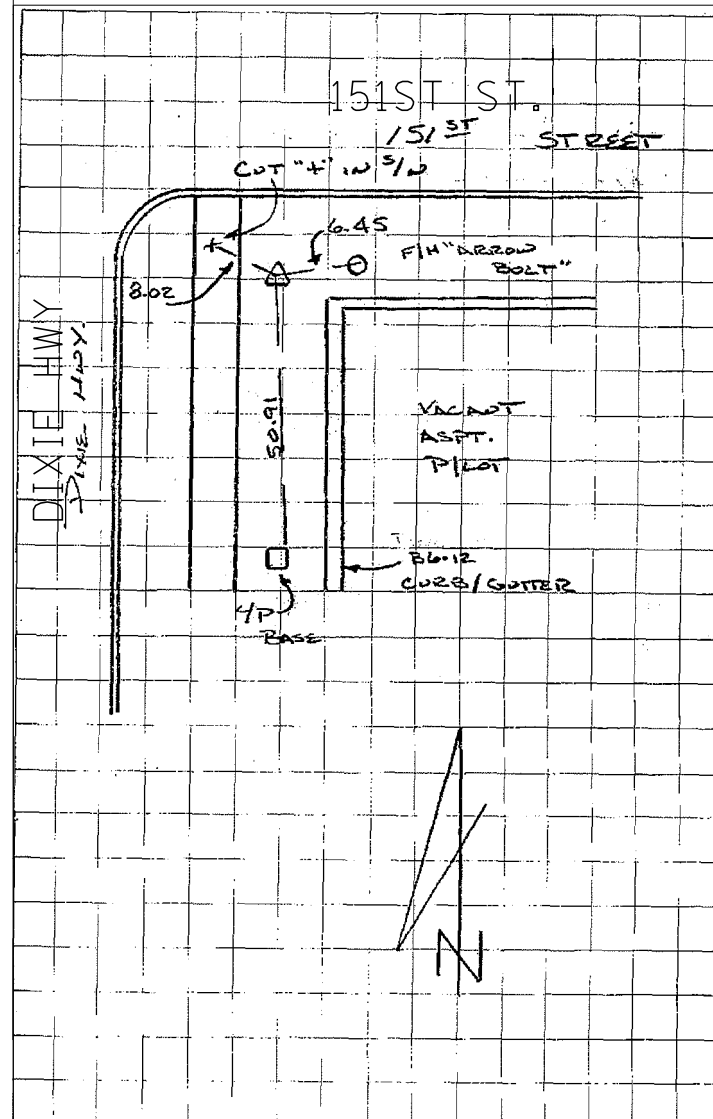 151ST ST.
151 ST STREET
CUT "+" IN S/W
6.45
F/H "ARROW
BOLT"
8.02
DIXIE HWY
DIXIE HWY.
50.91
VACANT
ASPT.
P/LOT
B6.12
CURB/GUTTER
Y/P
BASE
N